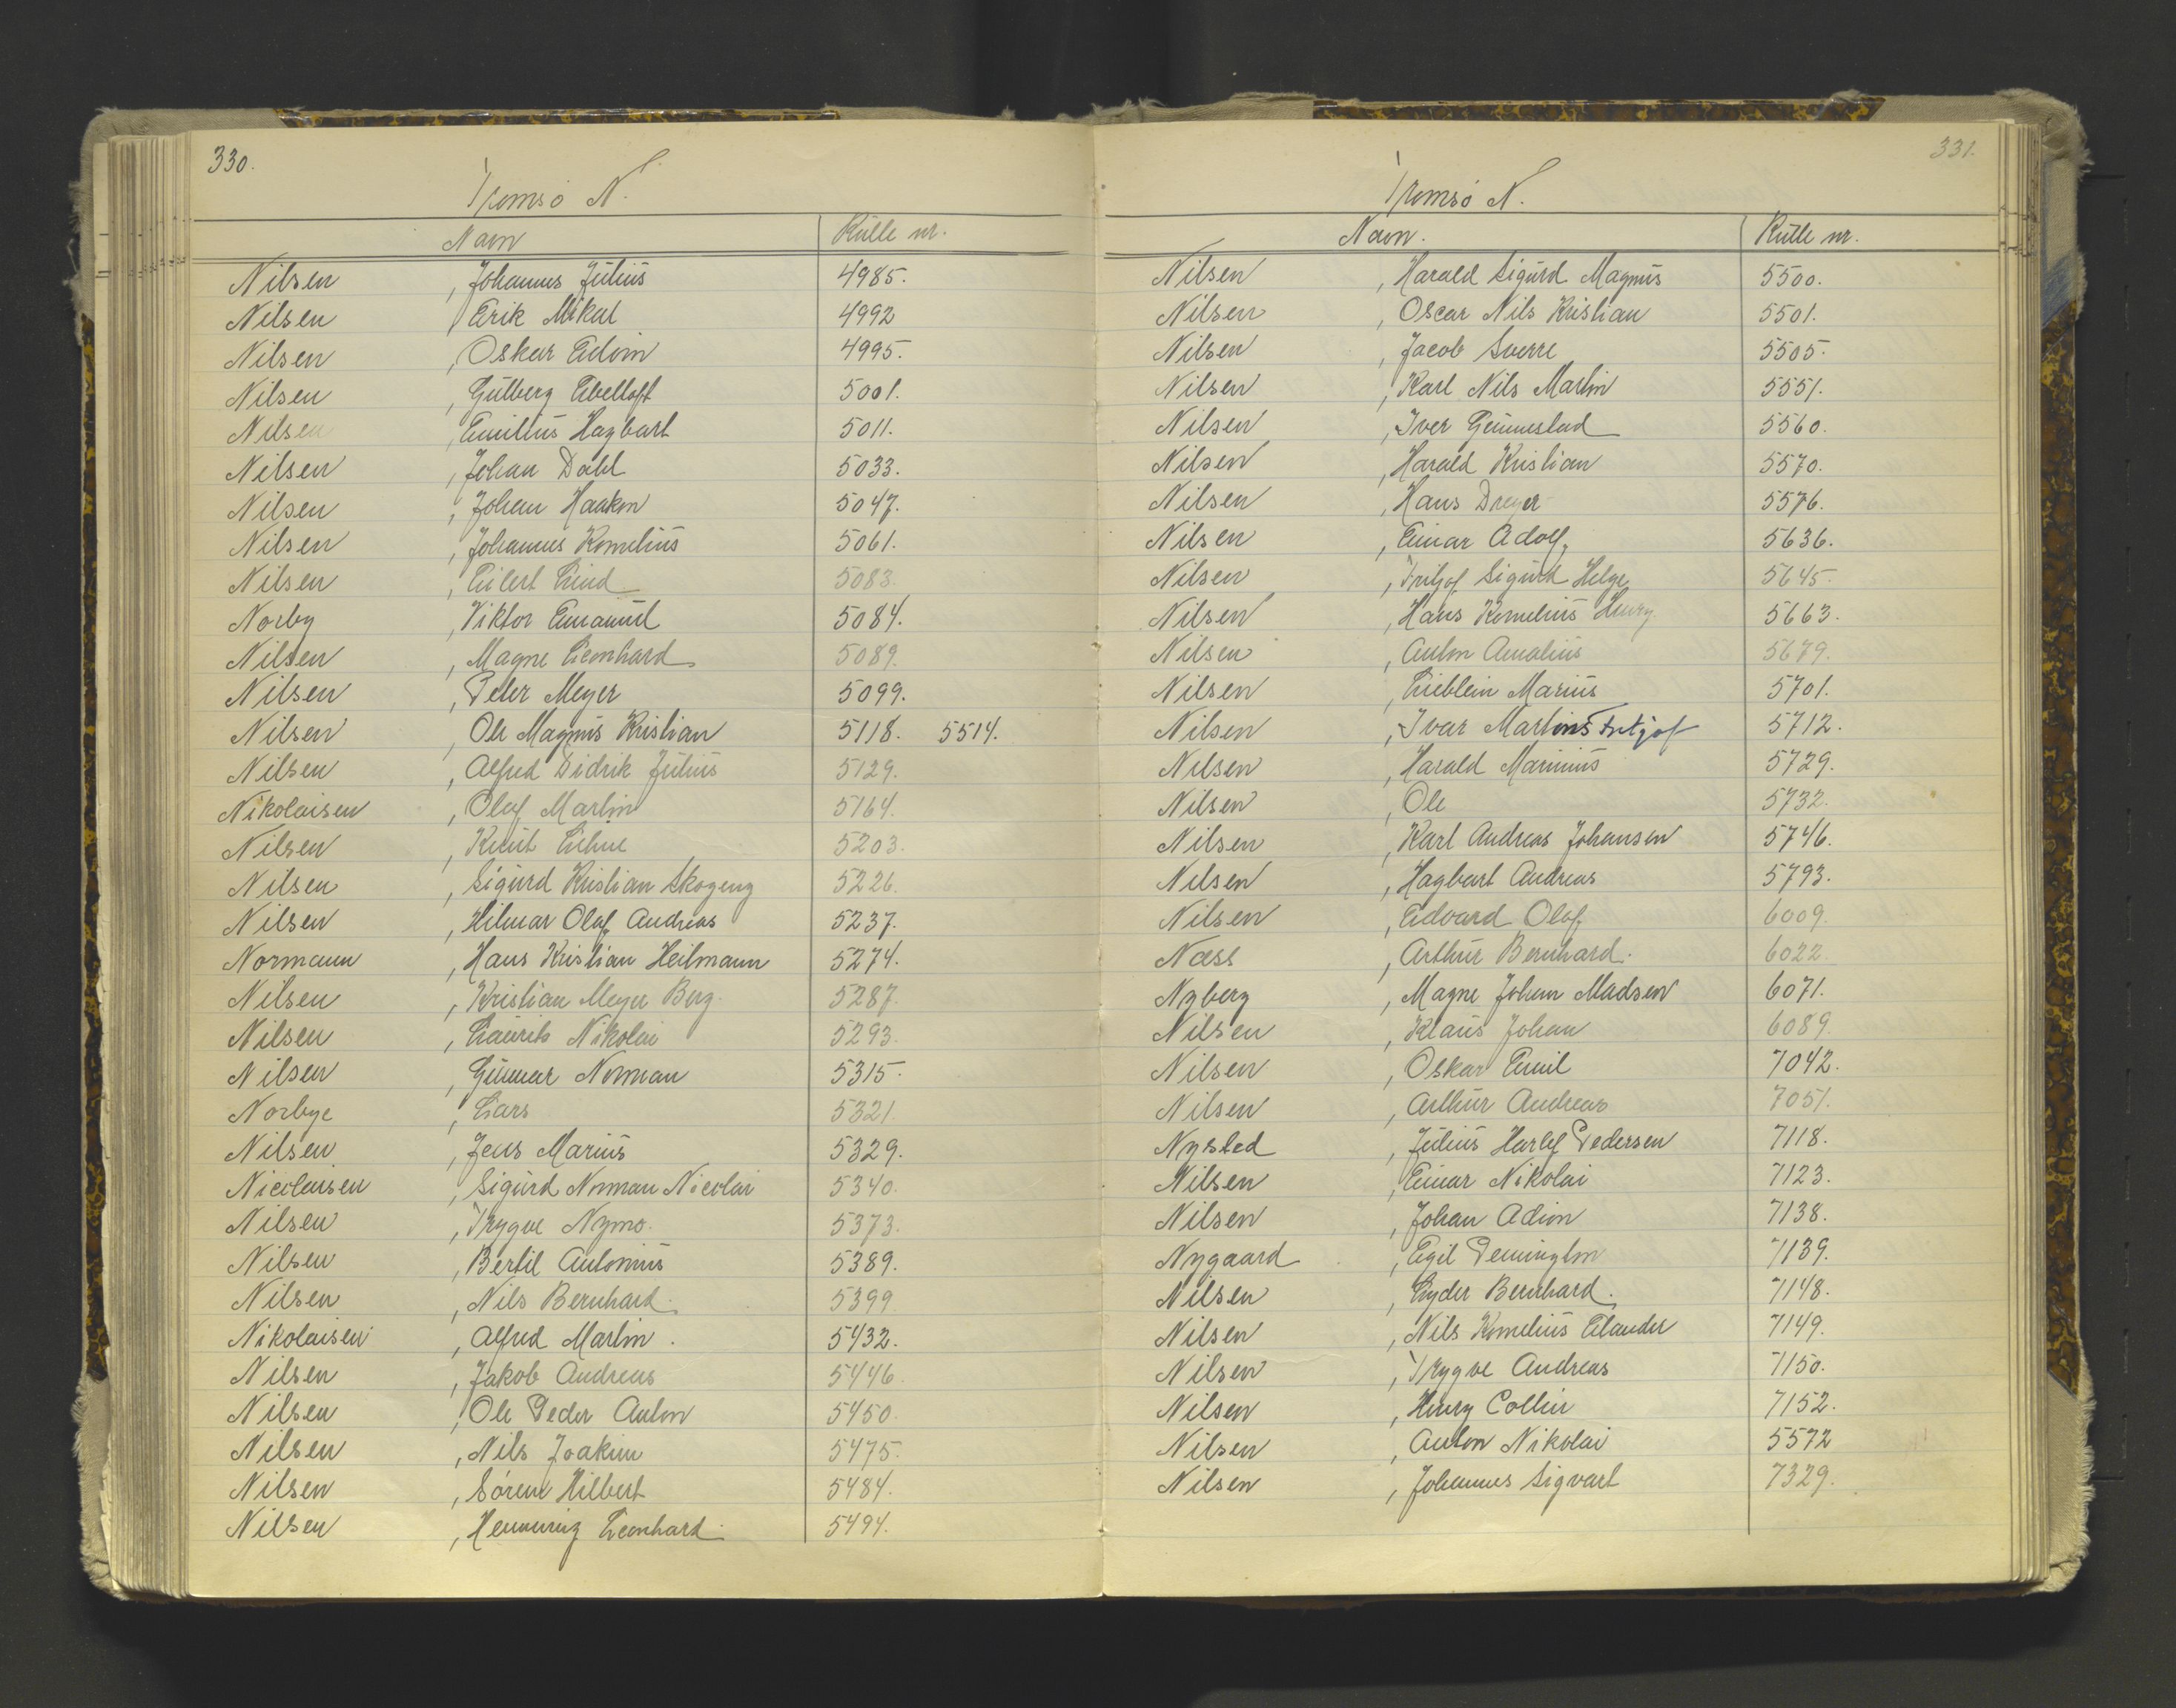 330.
Tromsø N.
Navn Rulle nr.
Nilsen , Johannes Julius 4985.
Nilsen , Erik Mikal 4992
Nilsen , Oskar Edvin 4995.
Nilsen , Gulberg Ebeltoft 5001.
Nilsen , Emilius Hagbart 5011.
Nilsen , Johan Dahl 5033.
Nilsen , Johan Haakon 5047.
Nilsen , Johannes Kornelius 5061.
Nilsen , Eilert Lind 5083.
Norby , Viktor Emanuel 5084.
Nilsen , Magne Leonhard 5089.
Nilsen , Peter Meyer 5099.
Nilsen , Ole Magnus Kristian 5118. 5514.
Nilsen , Alfred Didrik Julius 5129.
Nikolaisen , Olaf Martin 5164.
Nilsen , Knut Lihne 5203.
Nilsen , Sigurd Kristian Skogeng 5226.
Nilsen , Hilmar Olaf Andreas 5237.
Normann , Hans Kristian Heilmann 5274.
Nilsen , Kristian Meyer Berg 5287.
Nilsen , Laurits Nikolai 5293.
Nilsen , Gunnar Norman 5315.
Norbye , Lars 5321.
Nilsen , Jens Marius 5329.
Nicolaisen , Sigurd Norman Nicolai 5340.
Nilsen , Trygve Nymo. 5373.
Nilsen , Bertil Antonius 5389.
Nilsen , Nils Bernhard. 5399
Nikolaisen , Alfred Martin. 5432.
Nilsen , Jakob Andreas 5446.
Nilsen , Ole Peder Anton 5450.
Nilsen , Nils Joakim 5475.
Nilsen , Sørene Hilbert 5484.
Nilsen , Henning Leonhard. 5494.
331.
Tromsø N.
Navn. Rulle nr.
Nilsen , Harald Sigurd Magnus 5500.
Nilsen , Oscar Nils Kristian 5501.
Nilsen , Jacob Sverre 5505.
Nilsen , Karl Nils Martin 5551.
Nilsen , Iver Gunnestad 5560.
Nilsen , Harald Kristian 5570.
Nilsen , Hans Dreyer 5576.
Nilsen , Einar Adolf 5636.
Nilsen , Fritjof Sigurd Helge 5645.
Nilsen , Hans Kornelius Henry 5663.
Nilsen , Anton Amalius 5679.
Nilsen , Lieblein Marius 5701.
Nilsen , Ivar Martins Fritjof 5712.
Nilsen , Harald Marinius 5729.
Nilsen , Ole 5732.
Nilsen , Karl Andreas Johansen 5746.
Nilsen , Hagbart Andreas 5793.
Nilsen , Edvard Olaf 6009.
Næss , Arthur Bernhard. 6022.
Nyberg , Magne Johan Madsen 6071.
Nilsen , Klaus Johan 6089.
Nilsen , Oskar Emil 7042.
Nilsen , Arthur Andreas 7051.
Nysted , Julius Harlef Pedersen 7118.
Nilsen , Einar Nikolai 7123.
Nilsen , Johan Adion 7138.
Nygaard , Egil Pennington 7139.
Nilsen , Lyder Bernhard. 7148.
Nilsen , Nils Kornelius Elander 7149.
Nilsen , Trygve Andreas 7150.
Nilsen , Henry Collin 7152.
Nilsen , Anton Nikolai 5572
Nilsen , Johannes Sigvart 7329.